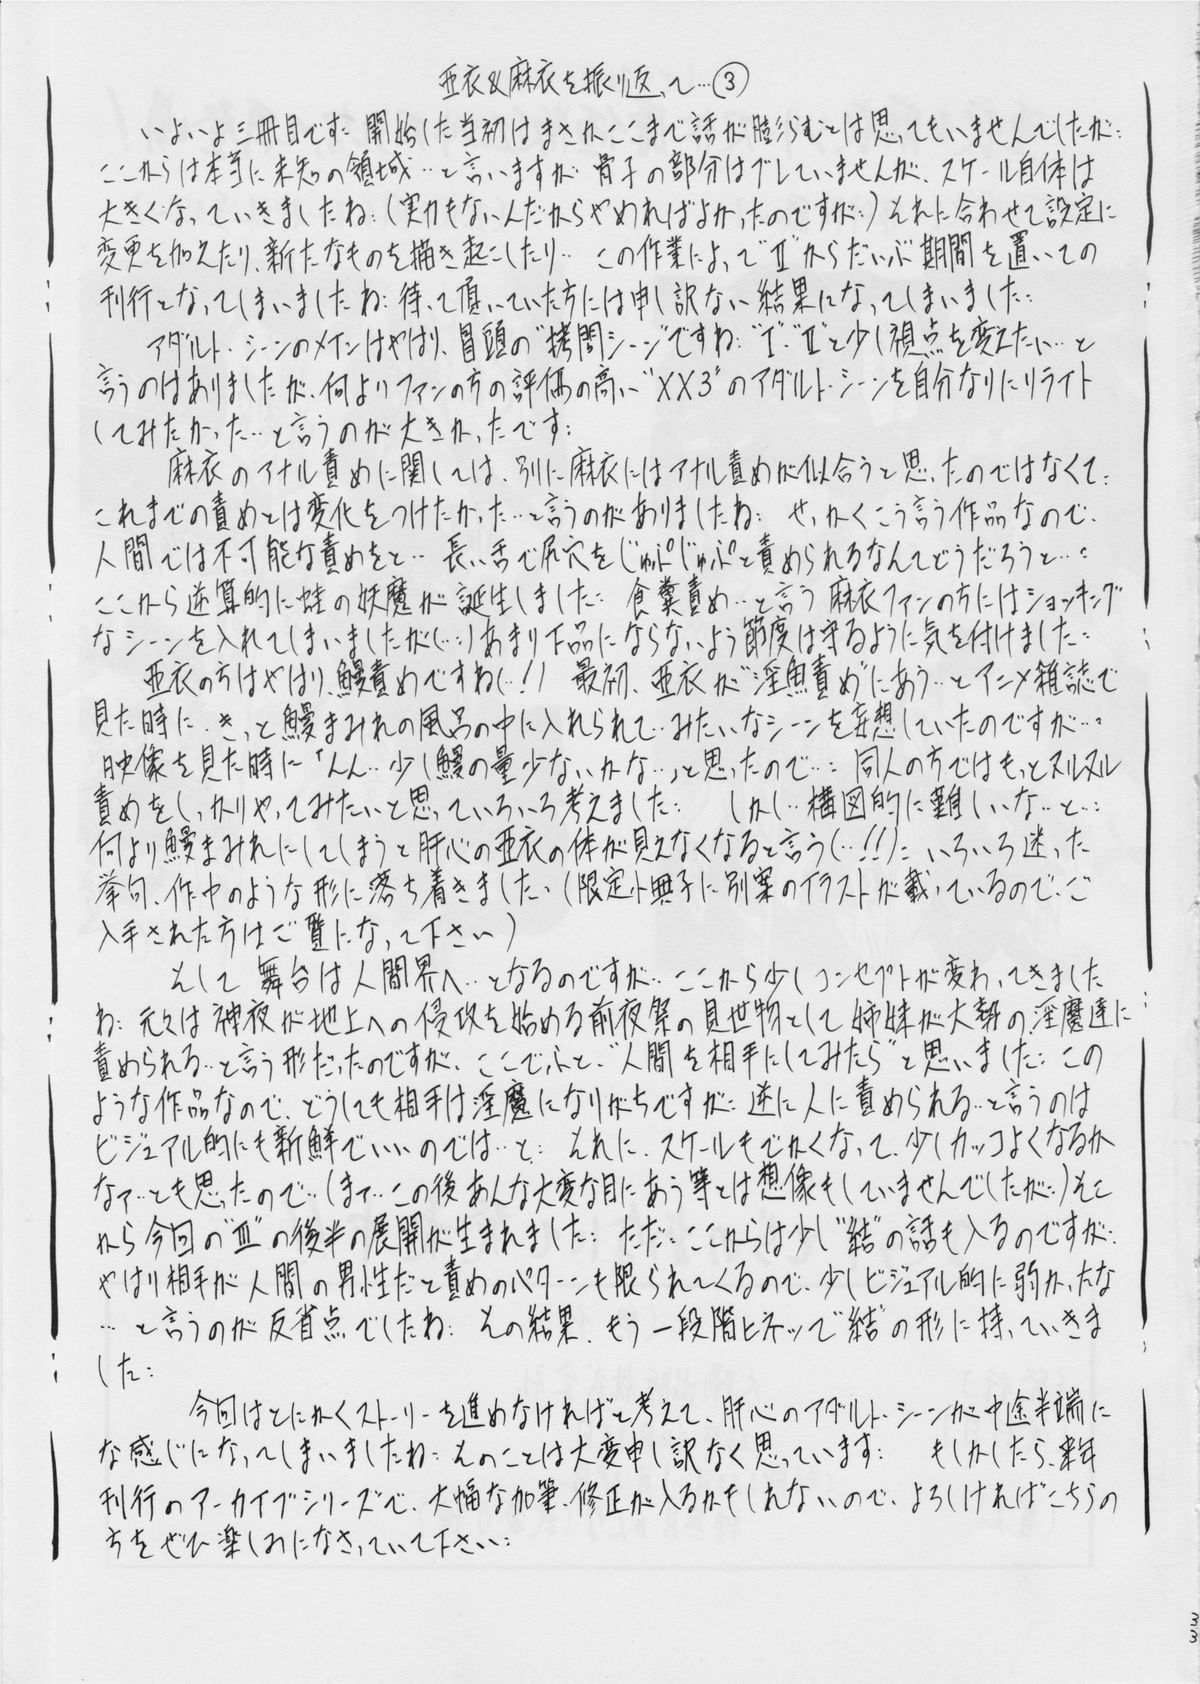 亜衣&麻衣を振り返って…③
いよいよ三冊目です… 開始した当初はまさかここまで話が膨らむとは思ってもいませんでしたが…
ここからは本当に未知の領域…と言いますが 骨子の部分はブレていませんが、スケール自体は
大きくなっていきましたね…(実力もないんだからやめればよかったのですが…)それに合わせて設定に
変更を加えたり、新たなものを描き起こしたり… この作業によって"Ⅱ"からだいぶ期間を置いての
刊行となってしまいましたね… 待って頂いていた方には申し訳ない結果になってしまいました…
アダルト・シーンのメインはやはり、冒頭の"拷問シーン"ですね… "Ⅰ"・"Ⅱ"と少し視点を変えたい…と
言うのはありましたが、何よりファンの方の評価の高い"XX3"のアダルト・シーンを自分なりにリライト
してみたかった…と言うのが大きかったです…
麻衣のアナル責めに関しては、別に麻衣にはアナル責めが似合うと思ったのではなくて…
これまでの責めとは変化をつけたかった…と言うのがありましたね… せっかくこう言う作品なので、
人間では不可能な責めをと… 長い舌で尻穴をじゅぷじゅぷと責められるなんてどうだろうと…
ここから逆算的に蛙の妖魔が誕生しました… 食糞責め…と言う麻衣ファンの方にはショッキング
なシーンを入れてしまいましたが(…)あまり下品にならないよう節度は守るように気を付けました…
亜衣の方はやはり、鰻責めですね(…!) 最初、亜衣が"淫魚責め"にあう…とアニメ雑誌で
見た時に、きっと鰻まみれの風呂の中に入れられて…みたいなシーンを妄想していたのですが…
映像を見た時に「んん…少し鰻の量少ないかな…」と思ったので… 同人の方ではもっとヌルヌル
責めをしっかりやってみたいと思っていろいろ考えました… しかし…構図的に難しいな…と…
何より鰻まみれにしてしまうと肝心の亜衣の体が見えなくなると言う(…!!)… いろいろ迷った
挙句、作中のような形に落ち着きました。(限定小冊子に別案のイラストが載っているので、ご
入手された方はご覧になって下さい)
そして 舞台は人間界へ…となるのですが… ここから少しコンセプトが変わってきました
ね… 元々は神夜が地上への侵攻を始める前夜祭の見世物として姉妹が大勢の淫魔達に
責められる…と言う形だったのですが、ここでふと、"人間を相手にしてみたら"と思いました… この
ような作品なので、どうしても相手は淫魔になりがちですが… 逆に人に責められる…と言うのは
ビジュアル的にも新鮮でいいのでは…と… それに、スケールもでかくなって、少しカッコよくなるか
なァ…とも思ったので…(まァ…この後あんな大変な目にあう等とは想像もしていませんでしたが…)そこ
から今回の"Ⅲ"の後半の展開が生まれました… ただ… ここからは少し"結"の話も入るのですが…
やはり相手が人間の男性だと責めのパターンも限られてくるので、少しビジュアル的に弱かったな
…と言うのが反省点でしたね… その結果、もう一段階ヒネッて"結"の形に持っていきま
した…
今回はとにかくストーリーを進めなければと考えて、肝心のアダルト・シーンが中途半端に
な感じになってしまいましたね… そのことは大変申し訳なく思っています… もしかしたら、来年
刊行のアーカイブシリーズで、大幅な加筆、修正が入るかもしれないので、よろしければこちらの
方をぜひ楽しみになさっていて下さい…
33